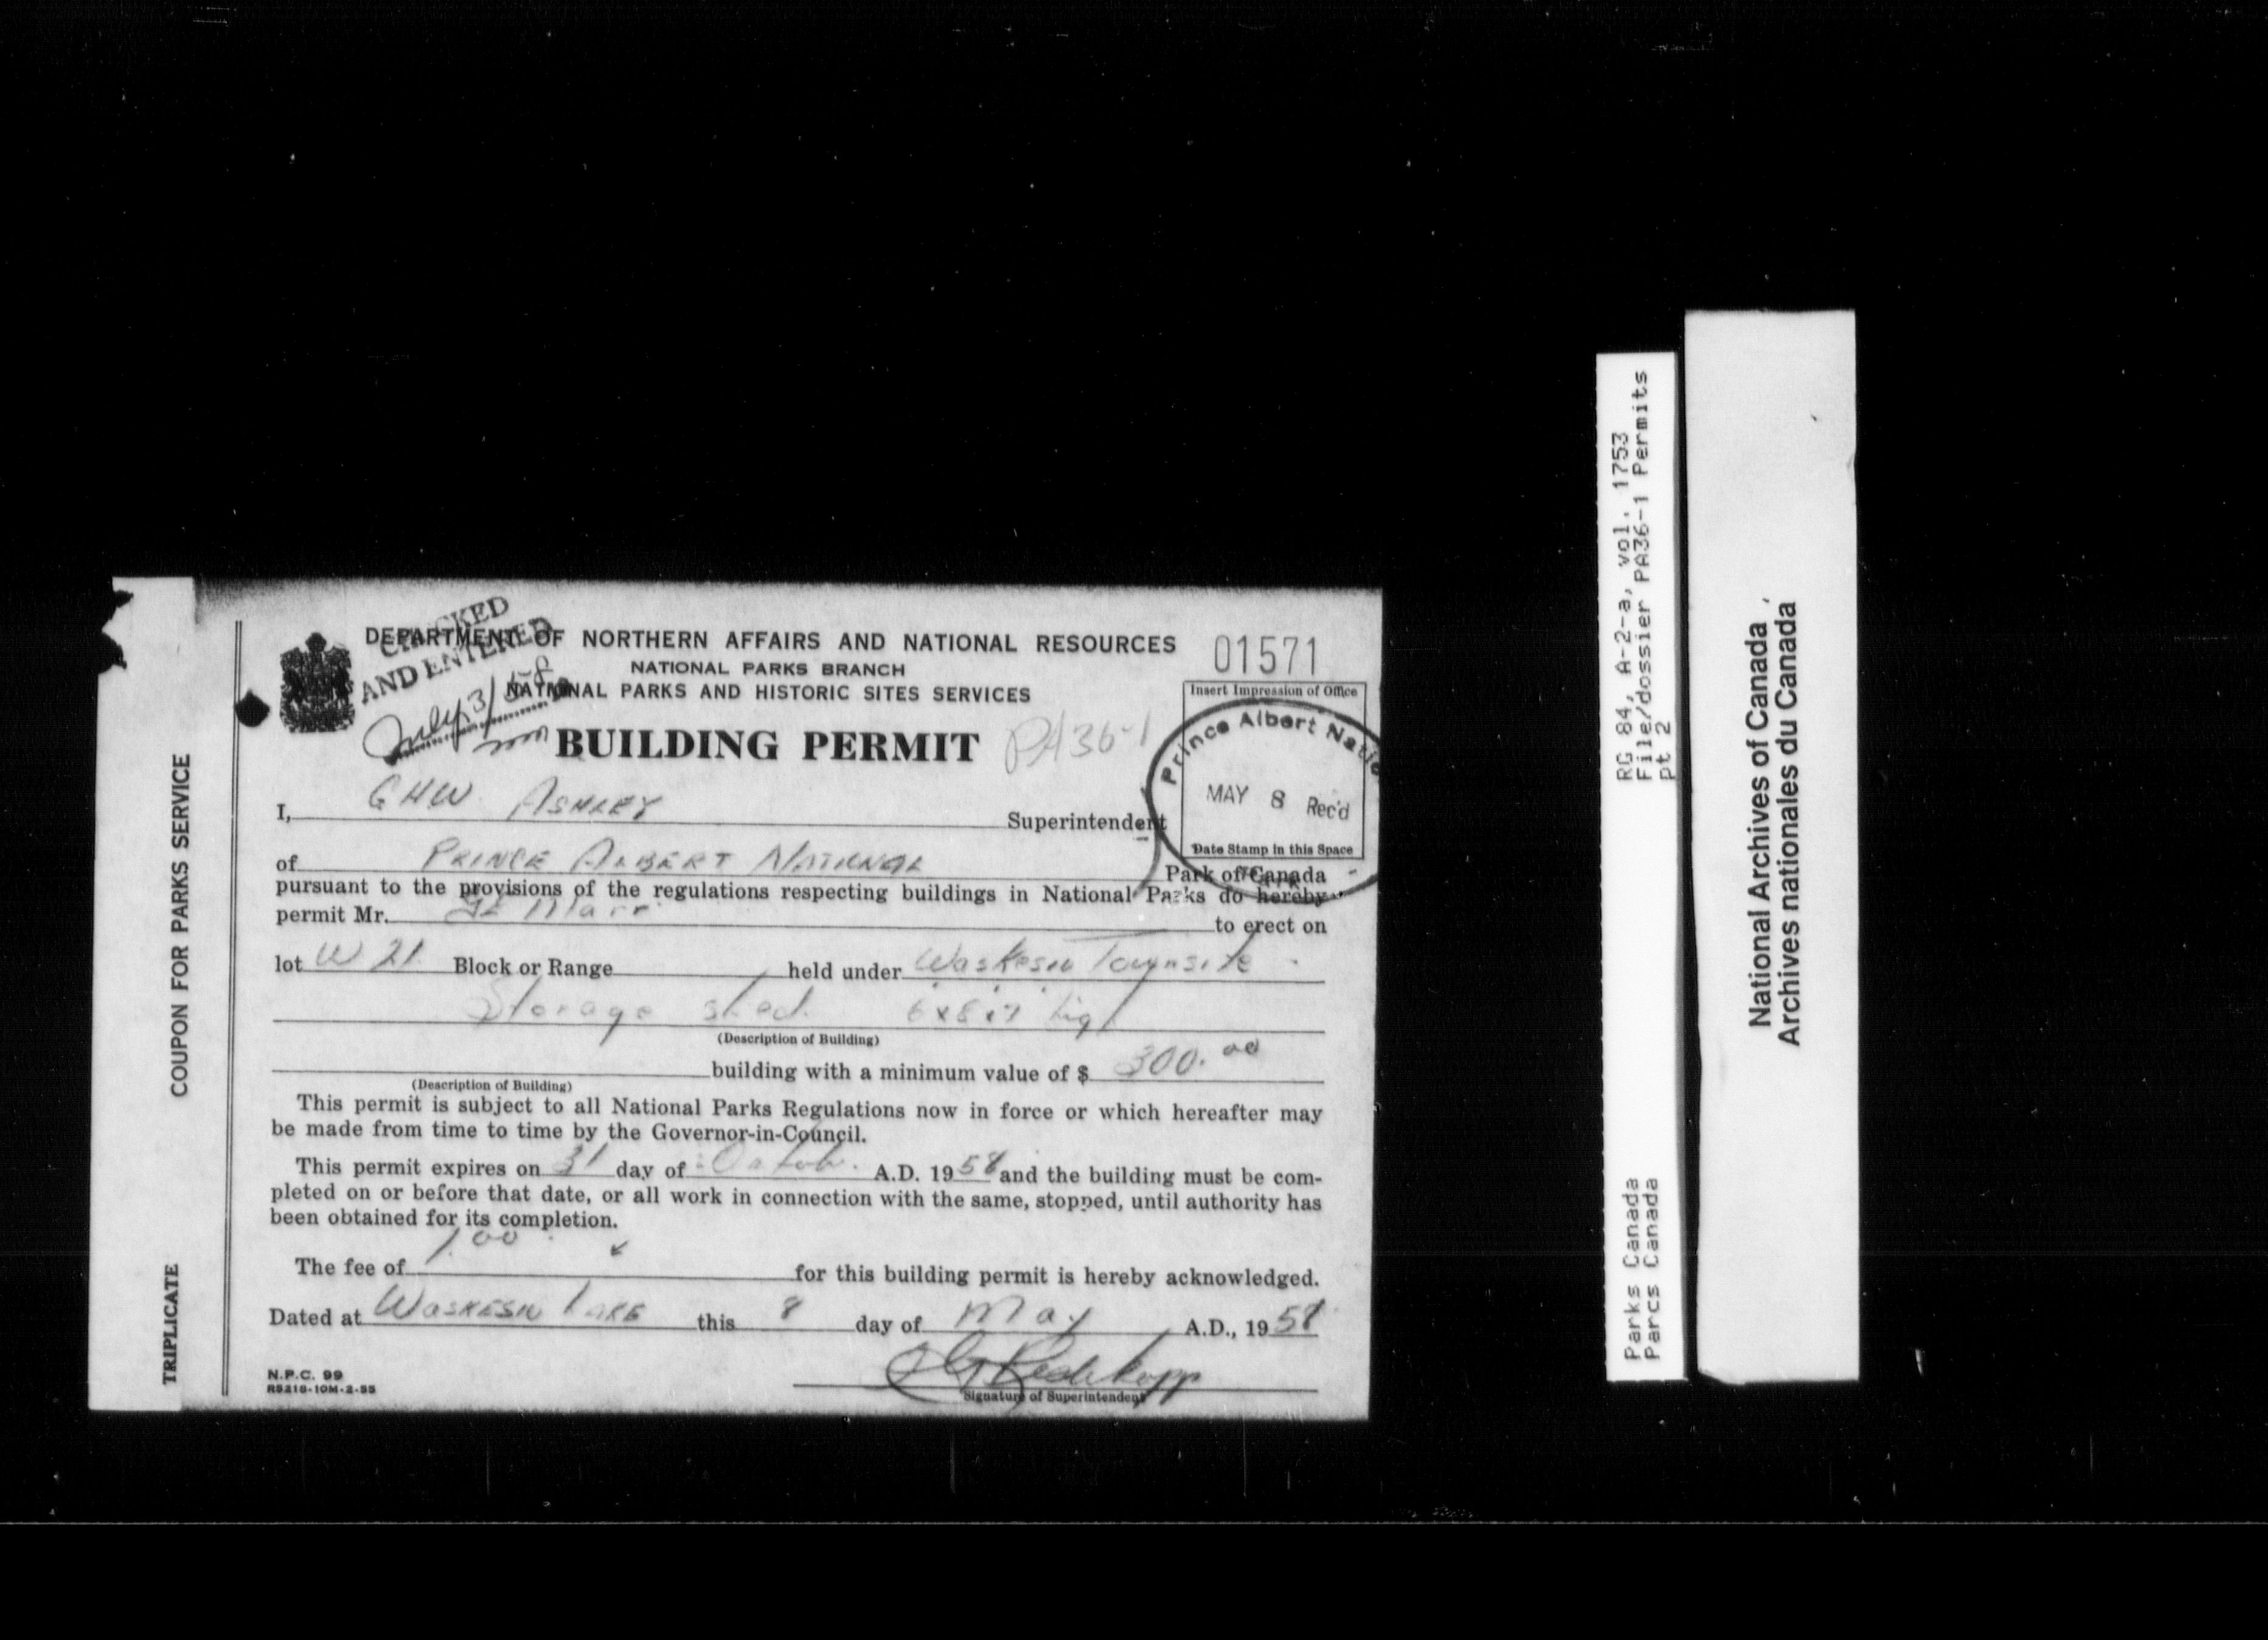 CHECKED
AND ENTERED
July 31/58
DEPARTMENT OF NORTHERN AFFAIRS AND NATIONAL RESOURCES
NATIONAL PARKS BRANCH
NATIONAL PARKS AND HISTORIC SITES SERVICES
01571
BUILDING PERMIT
PA36-1
Insert Impression of Office
Prince Albert Natio
MAY 8 Rec'd
Date Stamp in this Space
I, GHW Ashley Superintendent
of PRINCE ALBERT NATIONAL Park of Canada
pursuant to the provisions of the regulations respecting buildings in National Parks do hereby
permit Mr. Marr to erect on
lot W 21 Block or Range held under Waskesiu Townsite
Storage shed 6x8x7 high
(Description of Building)
building with a minimum value of $ 300.00
(Description of Building)
This permit is subject to all National Parks Regulations now in force or which hereafter may
be made from time to time by the Governor-in-Council.
This permit expires on 31 day of Octob. A.D. 1958 and the building must be com-
pleted on or before that date, or all work in connection with the same, stopped, until authority has
been obtained for its completion.
The fee of 1.00 for this building permit is hereby acknowledged.
Dated at WASKESIU LAKE this 8 day of May A.D., 1958
Signature of Superintendent
N.P.C. 99
R5218-10M-2-55
COUPON FOR PARKS SERVICE
TRIPLICATE
RG 84, A-2-a, vol. 1753
File/dossier PA36-1 Permits
pt 2
Parks Canada
Parcs Canada
National Archives of Canada
Archives nationales du Canada